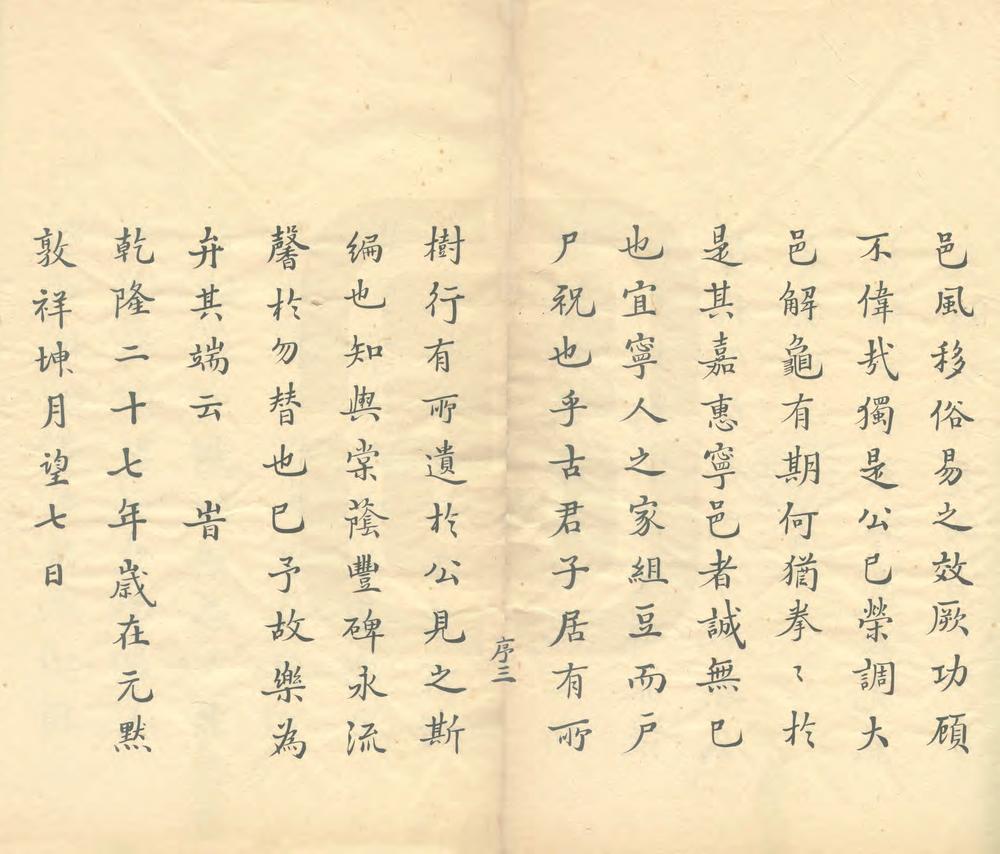 邑風移俗易之效厥功顧
不偉㢤獨是公已榮調大
邑解龜有期何猶拳〻於
是其嘉惠寧邑者誠無已
也宜寧人之家組豆而戶
尸祝也乎古君子居有所
序三
樹行有所遺於公見之斯
編也知與棠蔭豐碑永流
馨於勿替也已予故樂為
弁其端云　旹
乾隆二十七年歲在元黙
敦祥坤月望七日